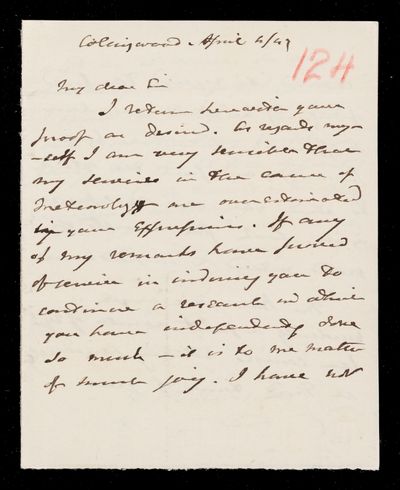 Collingwood. April 4/43
124
My dear Sir
I return herewith your
proof as desired. As regards my-
-self I am very sensible that
my services in the cause of
Meteorology are overestimated
by your expressions. If any
of my remarks have served
of service in inducing you to
continue a research in which
you have independently done
so much - it is to me matter
of much joy. I have not